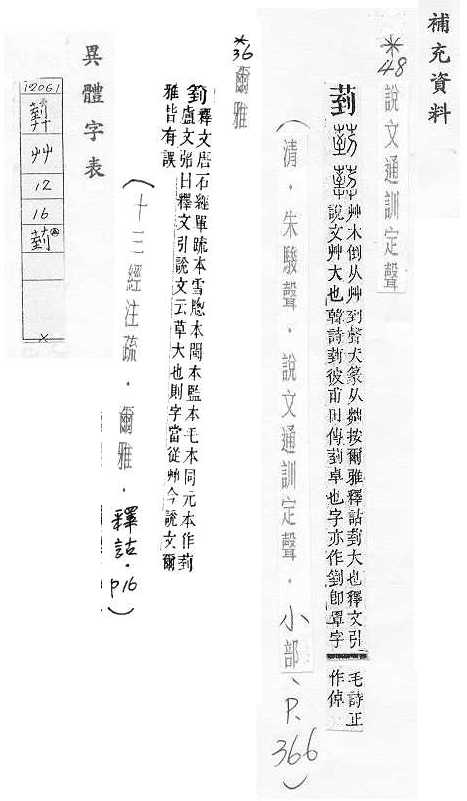 補充資料
*48 說文通訓定聲
菿
艸木倒从艸到聲大篆从茻按爾雅釋詁菿大也釋文引
說文艸大也韓詩菿彼甫田傳菿卓也字亦作箌卽罩字
毛詩正
作倬
(清．朱駿聲．說文通訓定聲．小部、P.366)
*36 爾雅
箌釋文唐石經單疏本雪牕本閩本監本毛本同元本作菿
盧文弨曰釋文引說文云草大也則字當從艸今說文爾
雅皆有誤
(十三經注疏．爾雅．釋詁．P16)
異體字表
12061
艸
12
16
菿
×